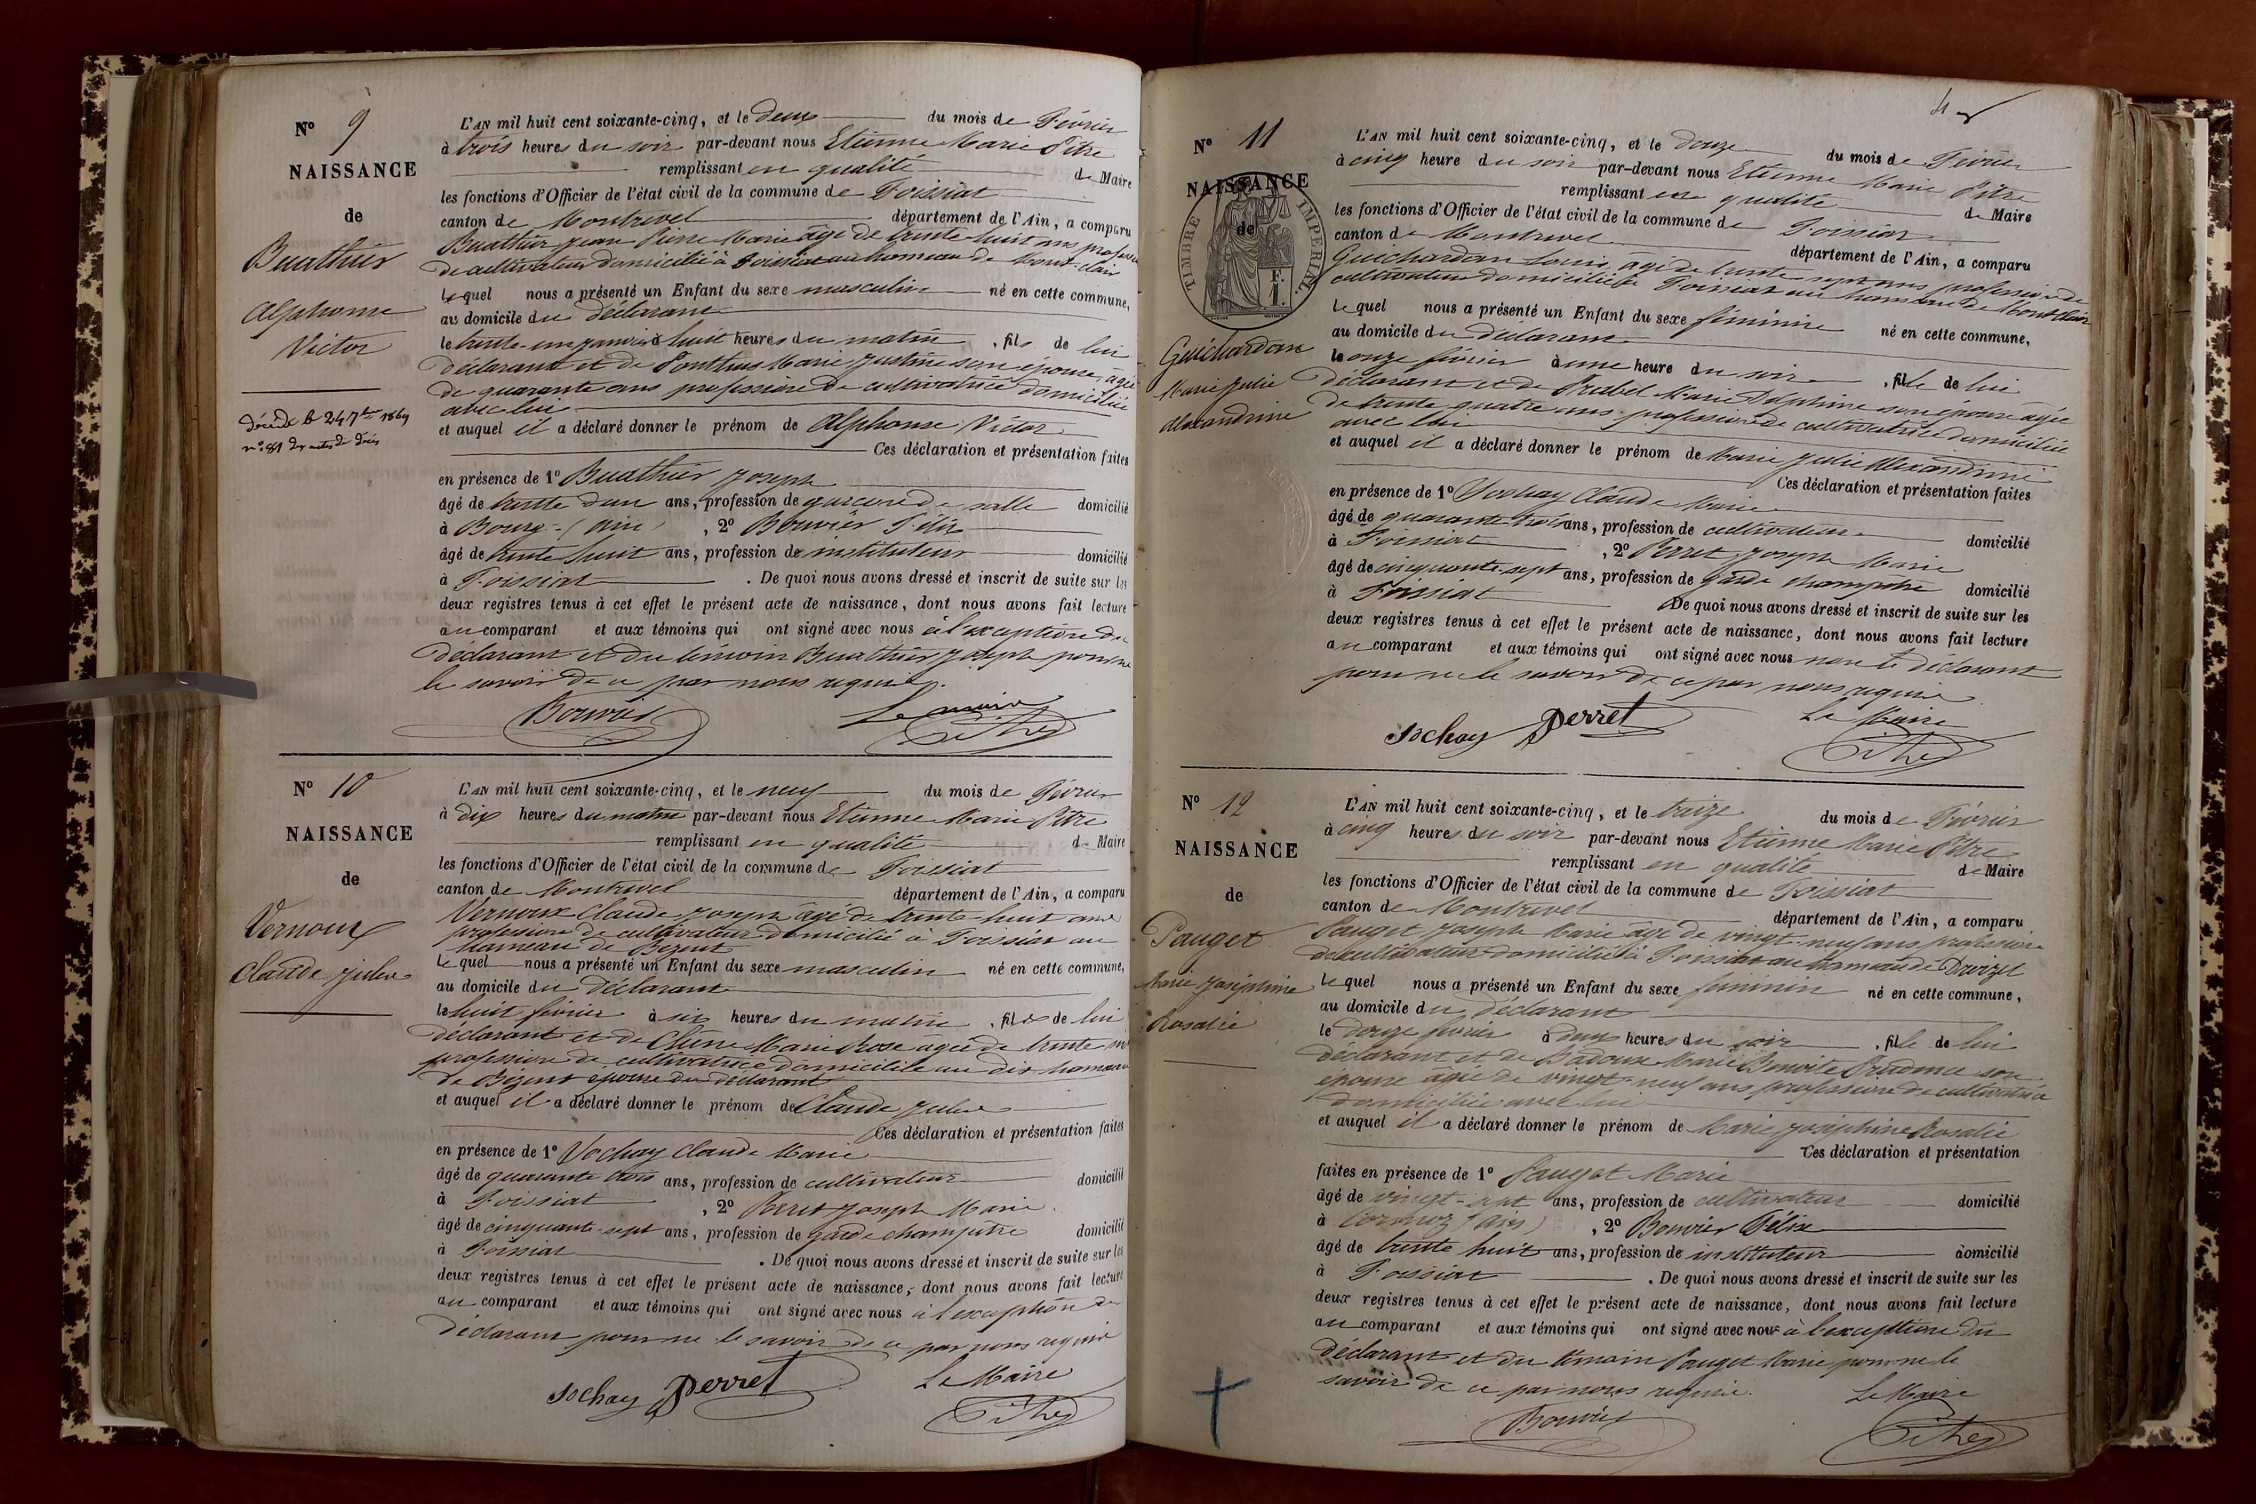 N° 9
NAISSANCE
de
Buathier
Alphonse
Victor
décédé le 24 7bre 1864
n° 81 des actes de décès
L'AN mil huit cent soixante-cinq, et le deux du mois de Février
à trois heures du soir par-devant nous Etienne Marie Pitre
remplissant en qualité de Maire
les fonctions d'Officier de l'état civil de la commune de Foissiat
canton de Montrevel département de l'Ain, a comparu
Buathier Jean Pierre Marie âgé de trente huit ans profession
de cultivateur domicilié à Foissiat au hameau de Mont-clair
lequel nous a présenté un Enfant du sexe masculin né en cette commune,
au domicile du déclarant
le trente-un janvier à huit heures du matin, fils de lui
déclarant et de Ponthus Marie Justine son épouse, âgée
de quarante ans profession de cultivatrice domiciliée
avec lui
et auquel il a déclaré donner le prénom de Alphonse Victor
Ces déclaration et présentation faites
en présence de 1° Buathier Joseph
âgé de trente d'un ans, profession de garçon de salle domicilié
à Bourg (Ain), 2° Bouvier Félix
âgé de trente huit ans, profession de instituteur domicilié
à Foissiat. De quoi nous avons dressé et inscrit de suite sur les
deux registres tenus à cet effet le présent acte de naissance, dont nous avons fait lecture
au comparant et aux témoins qui ont signé avec nous à l'exception du
déclarant et du témoin Buathier Joseph pour ne
le savoir de ce par nous requis.
Bouvier Le maire
Pitre
N° 10
NAISSANCE
de
Vernoux
Claude Julien
L'AN mil huit cent soixante-cinq, et le neuf du mois de Février
à dix heures du matin par-devant nous Etienne Marie Pitre
remplissant en qualité de Maire
les fonctions d'Officier de l'état civil de la commune de Foissiat
canton de Montrevel département de l'Ain, a comparu
Vernoux Claude Joseph âgé de trente-huit ans
profession de cultivateur domicilié à Foissiat au
hameau de Bezent
lequel nous a présenté un Enfant du sexe masculin né en cette commune,
au domicile du déclarant
le huit février à six heures du matin, fils de lui
déclarant et de Chêne Marie Rose agée de trente
profession de cultivatrice domiciliée au dit hameau
de Bézent épouse du déclarant
et auquel il a déclaré donner le prénom de Claude Julien
Ces déclaration et présentation faites
en présence de 1° Vochay Claude Marie
âgé de quarante trois ans, profession de cultivateur domicilié
à Foissiat, 2° Perret Joseph Marie
âgé de cinquante-sept ans, profession de garde champêtre domicilié
à Foissiat. De quoi nous avons dressé et inscrit de suite sur les
deux registres tenus à cet effet le présent acte de naissance, dont nous avons fait lecture
au comparant et aux témoins qui ont signé avec nous à l'exception du
déclarant pour ne le savoir de ce par nous requis
Vochay Perret Le Maire
Pitre
N° 11
NAISSANCE
de
TIMBRE IMPERIAL
F.
1.
Guichardon
Marie Julie
Alexandrine
L'AN mil huit cent soixante-cinq, et le douze du mois de Février
à cinq heure du soir par-devant nous Etienne Marie Pitre
remplissant en qualité de Maire
les fonctions d'Officier de l'état civil de la commune de Foissiat
canton de Montrevel département de l'Ain, a comparu
Guichardon Louis, âgé de trente sept ans profession de
cultivateur domicilié à Foissiat au hameau de Mont-clair
lequel nous a présenté un Enfant du sexe féminin né en cette commune,
au domicile du déclarant
le onze février à une heure du soir, fille de lui
déclarant et de Prabel Marie Delphine son épouse âgée
de trente quatre ans profession de cultivatrice domiciliée
avec lui
et auquel il a déclaré donner le prénom de Marie Julie Alexandrine
Ces déclaration et présentation faites
en présence de 1° Vochay Claude Marie
âgé de quarante trois ans, profession de cultivateur domicilié
à Foissiat, 2° Perret Joseph Marie
âgé de cinquante-sept ans, profession de garde champêtre domicilié
à Foissiat De quoi nous avons dressé et inscrit de suite sur les
deux registres tenus à cet effet le présent acte de naissance, dont nous avons fait lecture
au comparant et aux témoins qui ont signé avec nous non le déclarant
pour ne le savoir de ce par nous requis
Vochay Perret Le Maire
Pitre
N° 12
NAISSANCE
de
Pauget
Marie Joséphine
Rosalie
L'AN mil huit cent soixante-cinq, et le treize du mois de Février
à cinq heures du soir par-devant nous Etienne Marie Pitre
remplissant en qualité de Maire
les fonctions d'Officier de l'état civil de la commune de Foissiat
canton de Montrevel département de l'Ain, a comparu
Pauget Joseph Marie âgé de vingt-neuf ans profession
de cultivateur domicilié à Foissiat au hameau de Droizet
lequel nous a présenté un Enfant du sexe féminin né en cette commune,
au domicile du déclarant
le douze février à deux heures du soir, fille de lui
déclarant et de Badoux Marie Benoite Prudence son
épouse âgée de vingt-neuf ans profession de cultivatrice
domiciliée avec lui
et auquel il a déclaré donner le prénom de Marie Joséphine Rosalie
Ces déclaration et présentation
faites en présence de 1° Pauget Marie
âgé de vingt-sept ans, profession de cultivateur domicilié
à Cormoz (Ain), 2° Bouvier Félix
âgé de trente huit ans, profession de instituteur domicilié
à Foissiat. De quoi nous avons dressé et inscrit de suite sur les
deux registres tenus à cet effet le présent acte de naissance, dont nous avons fait lecture
au comparant et aux témoins qui ont signé avec nous à l'exception du
déclarant et du témoin Pauget Marie pour ne le
savoir de ce par nous requis. Le Maire
Bouvier Pitre